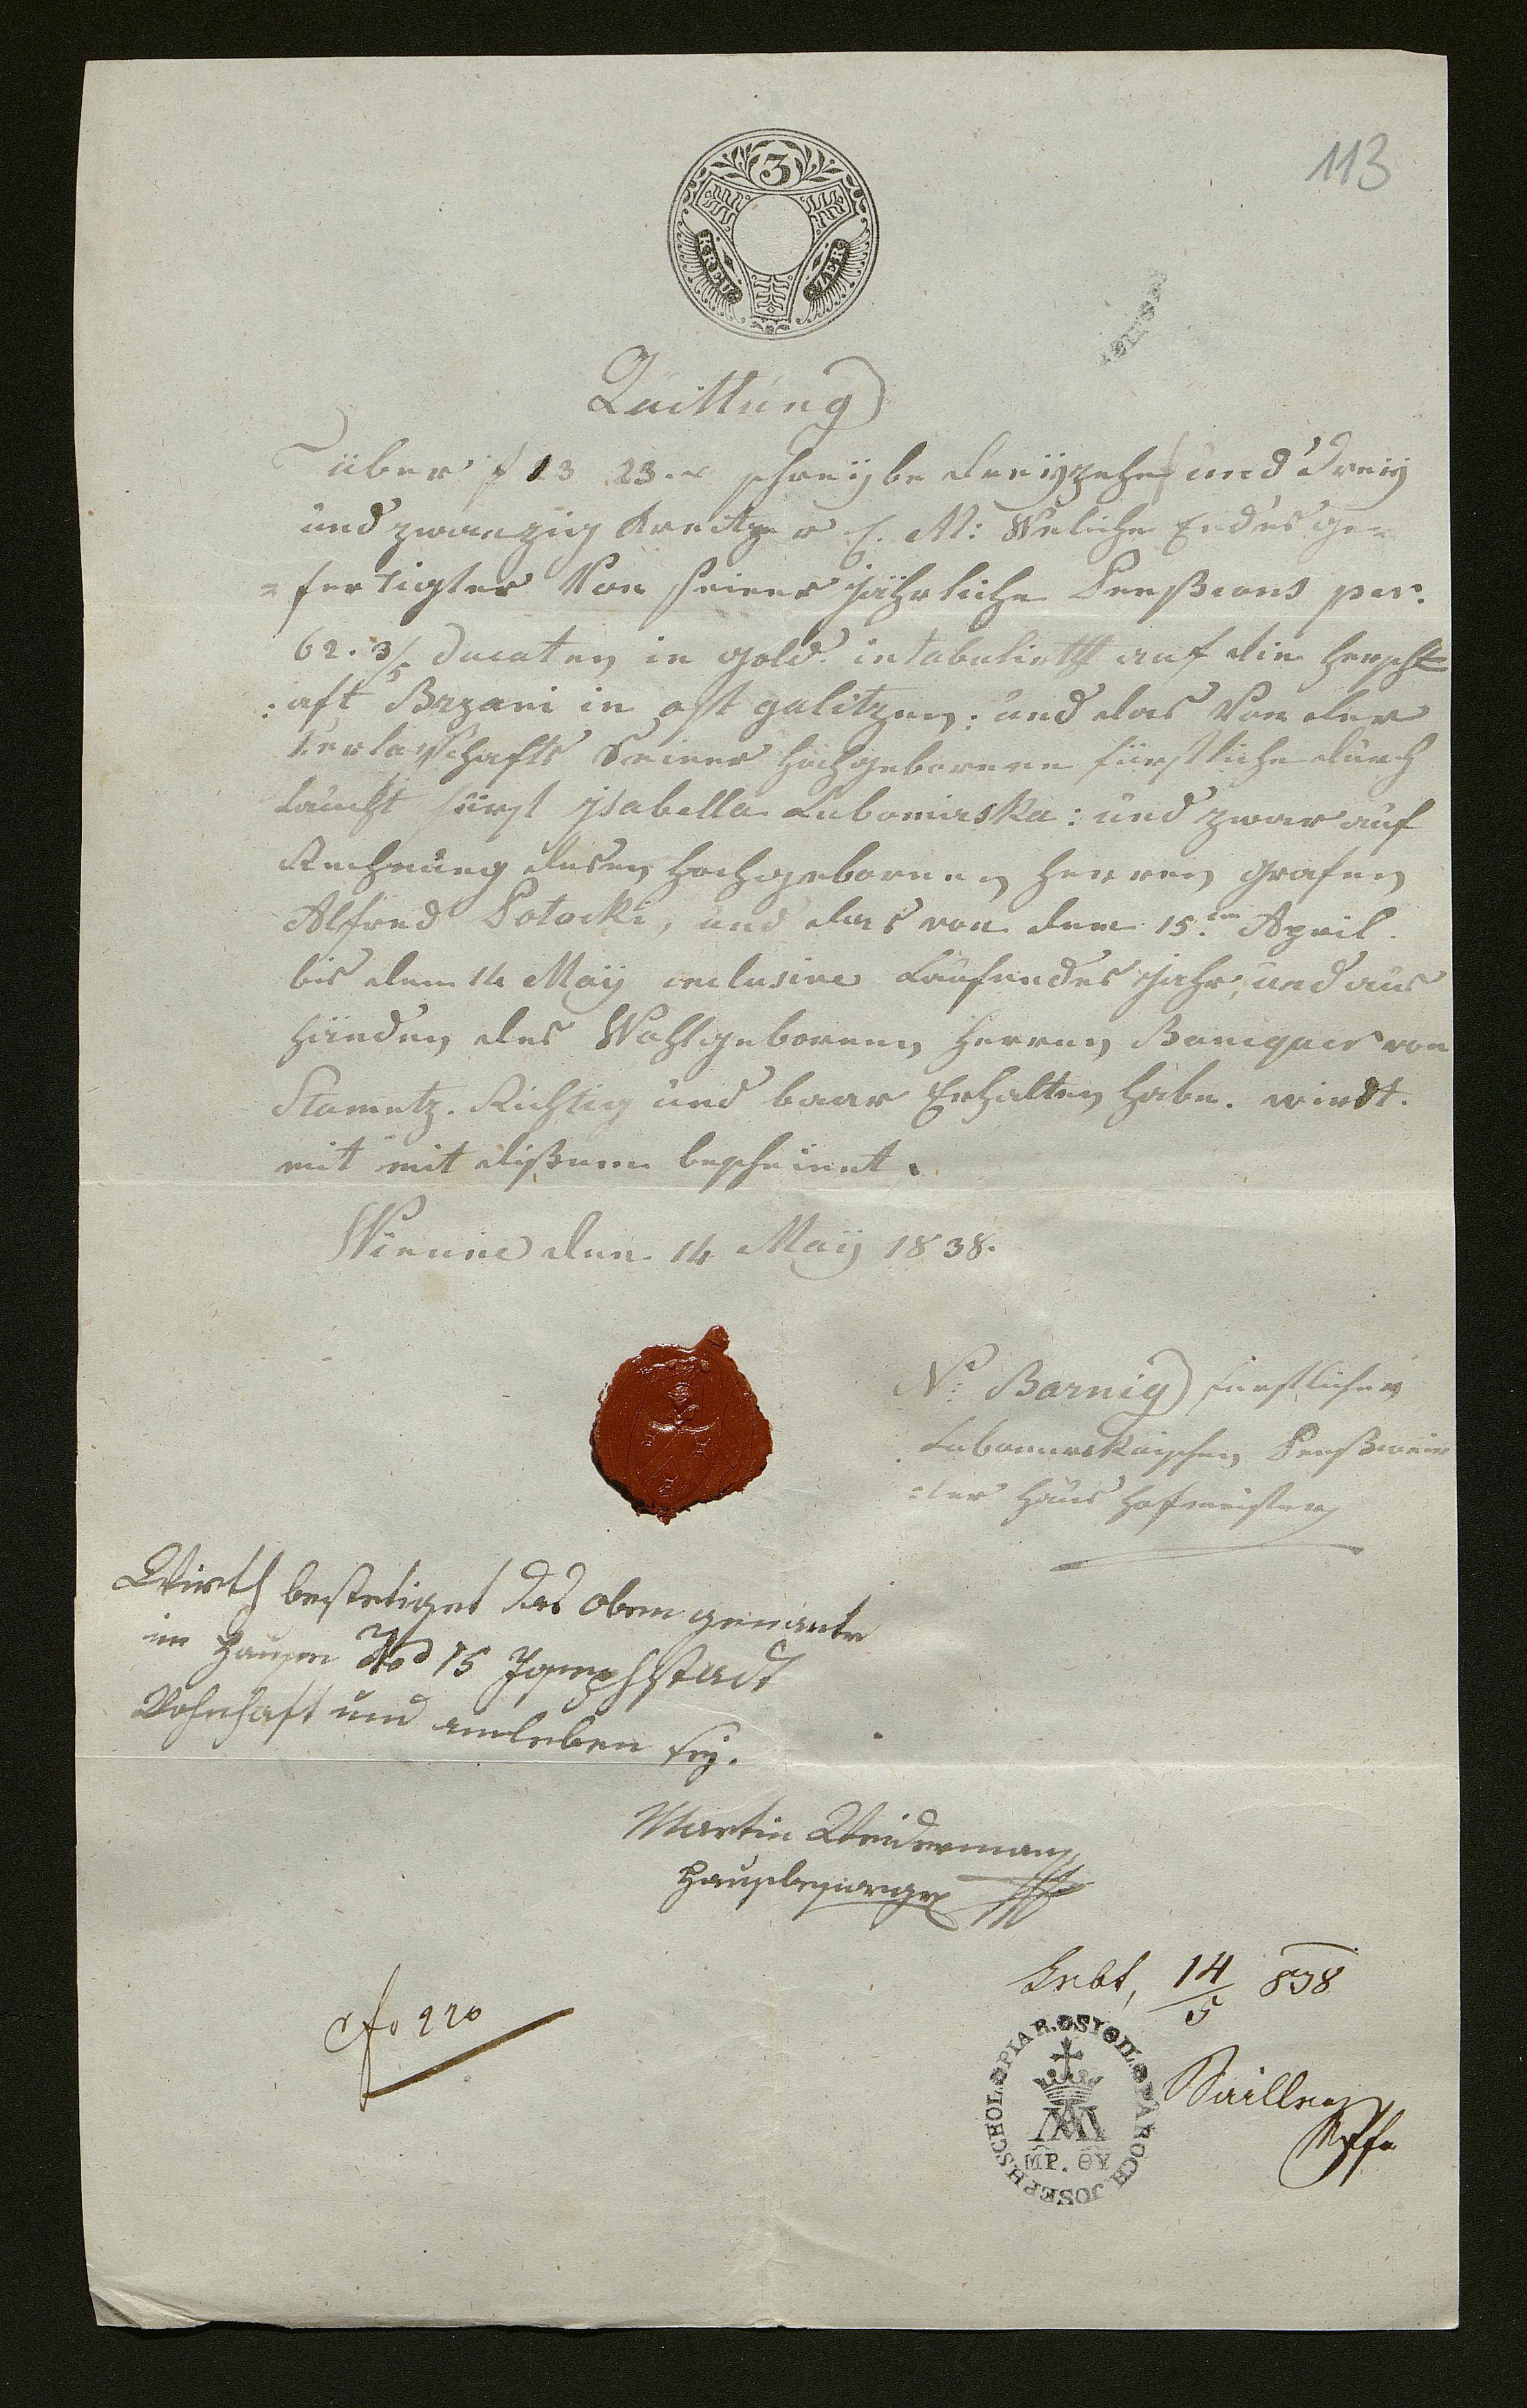 113
3
KREU ZER
Quittung
über f 13 23 xr schreÿbe dreÿzehn und dreÿ
und zwanzig Kreitzer C. M: Weliche Endes ge=
=fertigter Von seiner jährliche Penßions per.
62. 3/ Ducaten in Gold intabulirtt auf die Herscht
:aft Brzani in ost galitzen: und das Von der
Verlaßschafts Seiner Hochgebornen fürstliche durch
laucht fürst jsabella Lubomirska: und zwar auf
Rechnung desen Hochgebornen Herren Grafen
Alfred Potocki, und das von dem 15.ten April
bis dem 14 Maÿ inclusive Laufendes jahr, und aus
Händen des Wohlgebornen Herren Banquer von
Stametz. Richtig und baar Erhalten habe. wirdt.
mit mit dißem bescheinet.
Wienne den 14 Maÿ 1838.
N: Barnig fürstlicher
Lubomirskaischen Penßionir
=ter Haus Hofmeister
Wirth bestetiget das oben genante
im Hausse No 15 Josephstadt
Wohnhaft und amleben seÿ.
Martin Weidermann
Hausbesorger
Lebt, 14/5 838
PIAR. SIGIL. PAROCH JOSEPH. SCHOL.
MP. ΘV
Pfr
fo 220